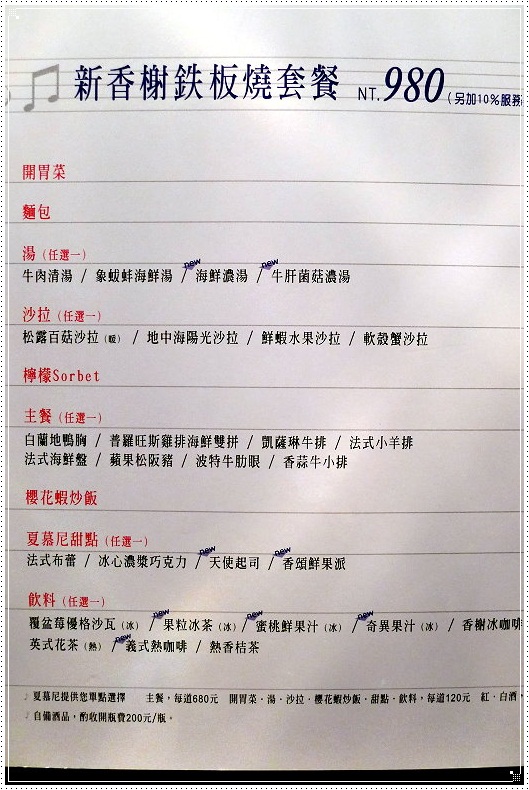 新香榭鉄板燒套餐 NT.980 (另加10%服務
開胃菜
麵包
湯 (任選一)
new new
牛肉清湯 / 象蚊蚌海鮮湯 / 海鮮濃湯 / 牛肝菌菇濃湯
沙拉 (任選一)
松露百菇沙拉(暖) / 地中海陽光沙拉 / 鮮蝦水果沙拉 / 軟殼蟹沙拉
檸檬Sorbet
主餐 (任選一)
白蘭地鴨胸 / 普羅旺斯雞排海鮮雙拼 / 凱薩琳牛排 / 法式小羊排
法式海鮮盤 / 蘋果松阪豬 / 波特牛肋眼 / 香蒜牛小排
櫻花蝦炒飯
夏慕尼甜點 (任選一)
new new
法式布蕾 / 冰心濃漿巧克力 / 天使起司 / 香頌鮮果派
飲料 (任選一)
new new new
覆盆莓優格沙瓦 (冰) / 果粒冰茶 (冰) / 蜜桃鮮果汁 (冰) / 奇異果汁 (冰) / 香榭冰咖啡
new
英式花茶 (熱) / 義式熱咖啡 / 熱香桔茶
♪ 夏慕尼提供您單點選擇 主餐，每道680元 開胃菜．湯．沙拉．櫻花蝦炒飯．甜點．飲料，每道120元 紅．白酒
♪ 自備酒品，酌收開瓶費200元/瓶。